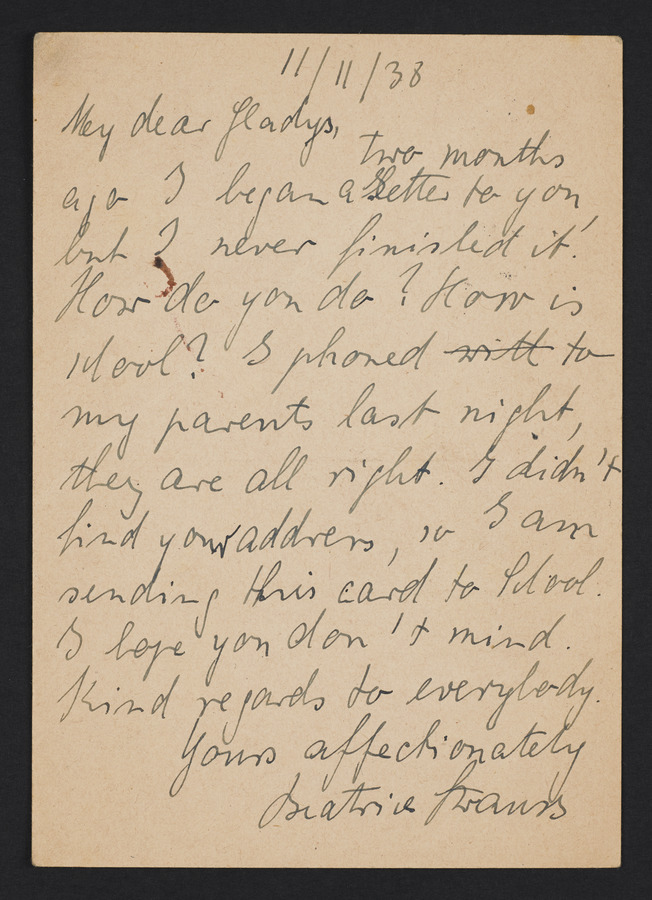 11/11/38
My dear Gladys,
two months
ago I began a letter to you,
but I never finished it!
How do you do? How is
school? I phoned with to
my parents last night,
they are all right. I didn't
find your address, so I am
sending this card to School.
I hope you don't mind.
Kind regards to everybody.
Yours affectionately
Beatrice Strauss